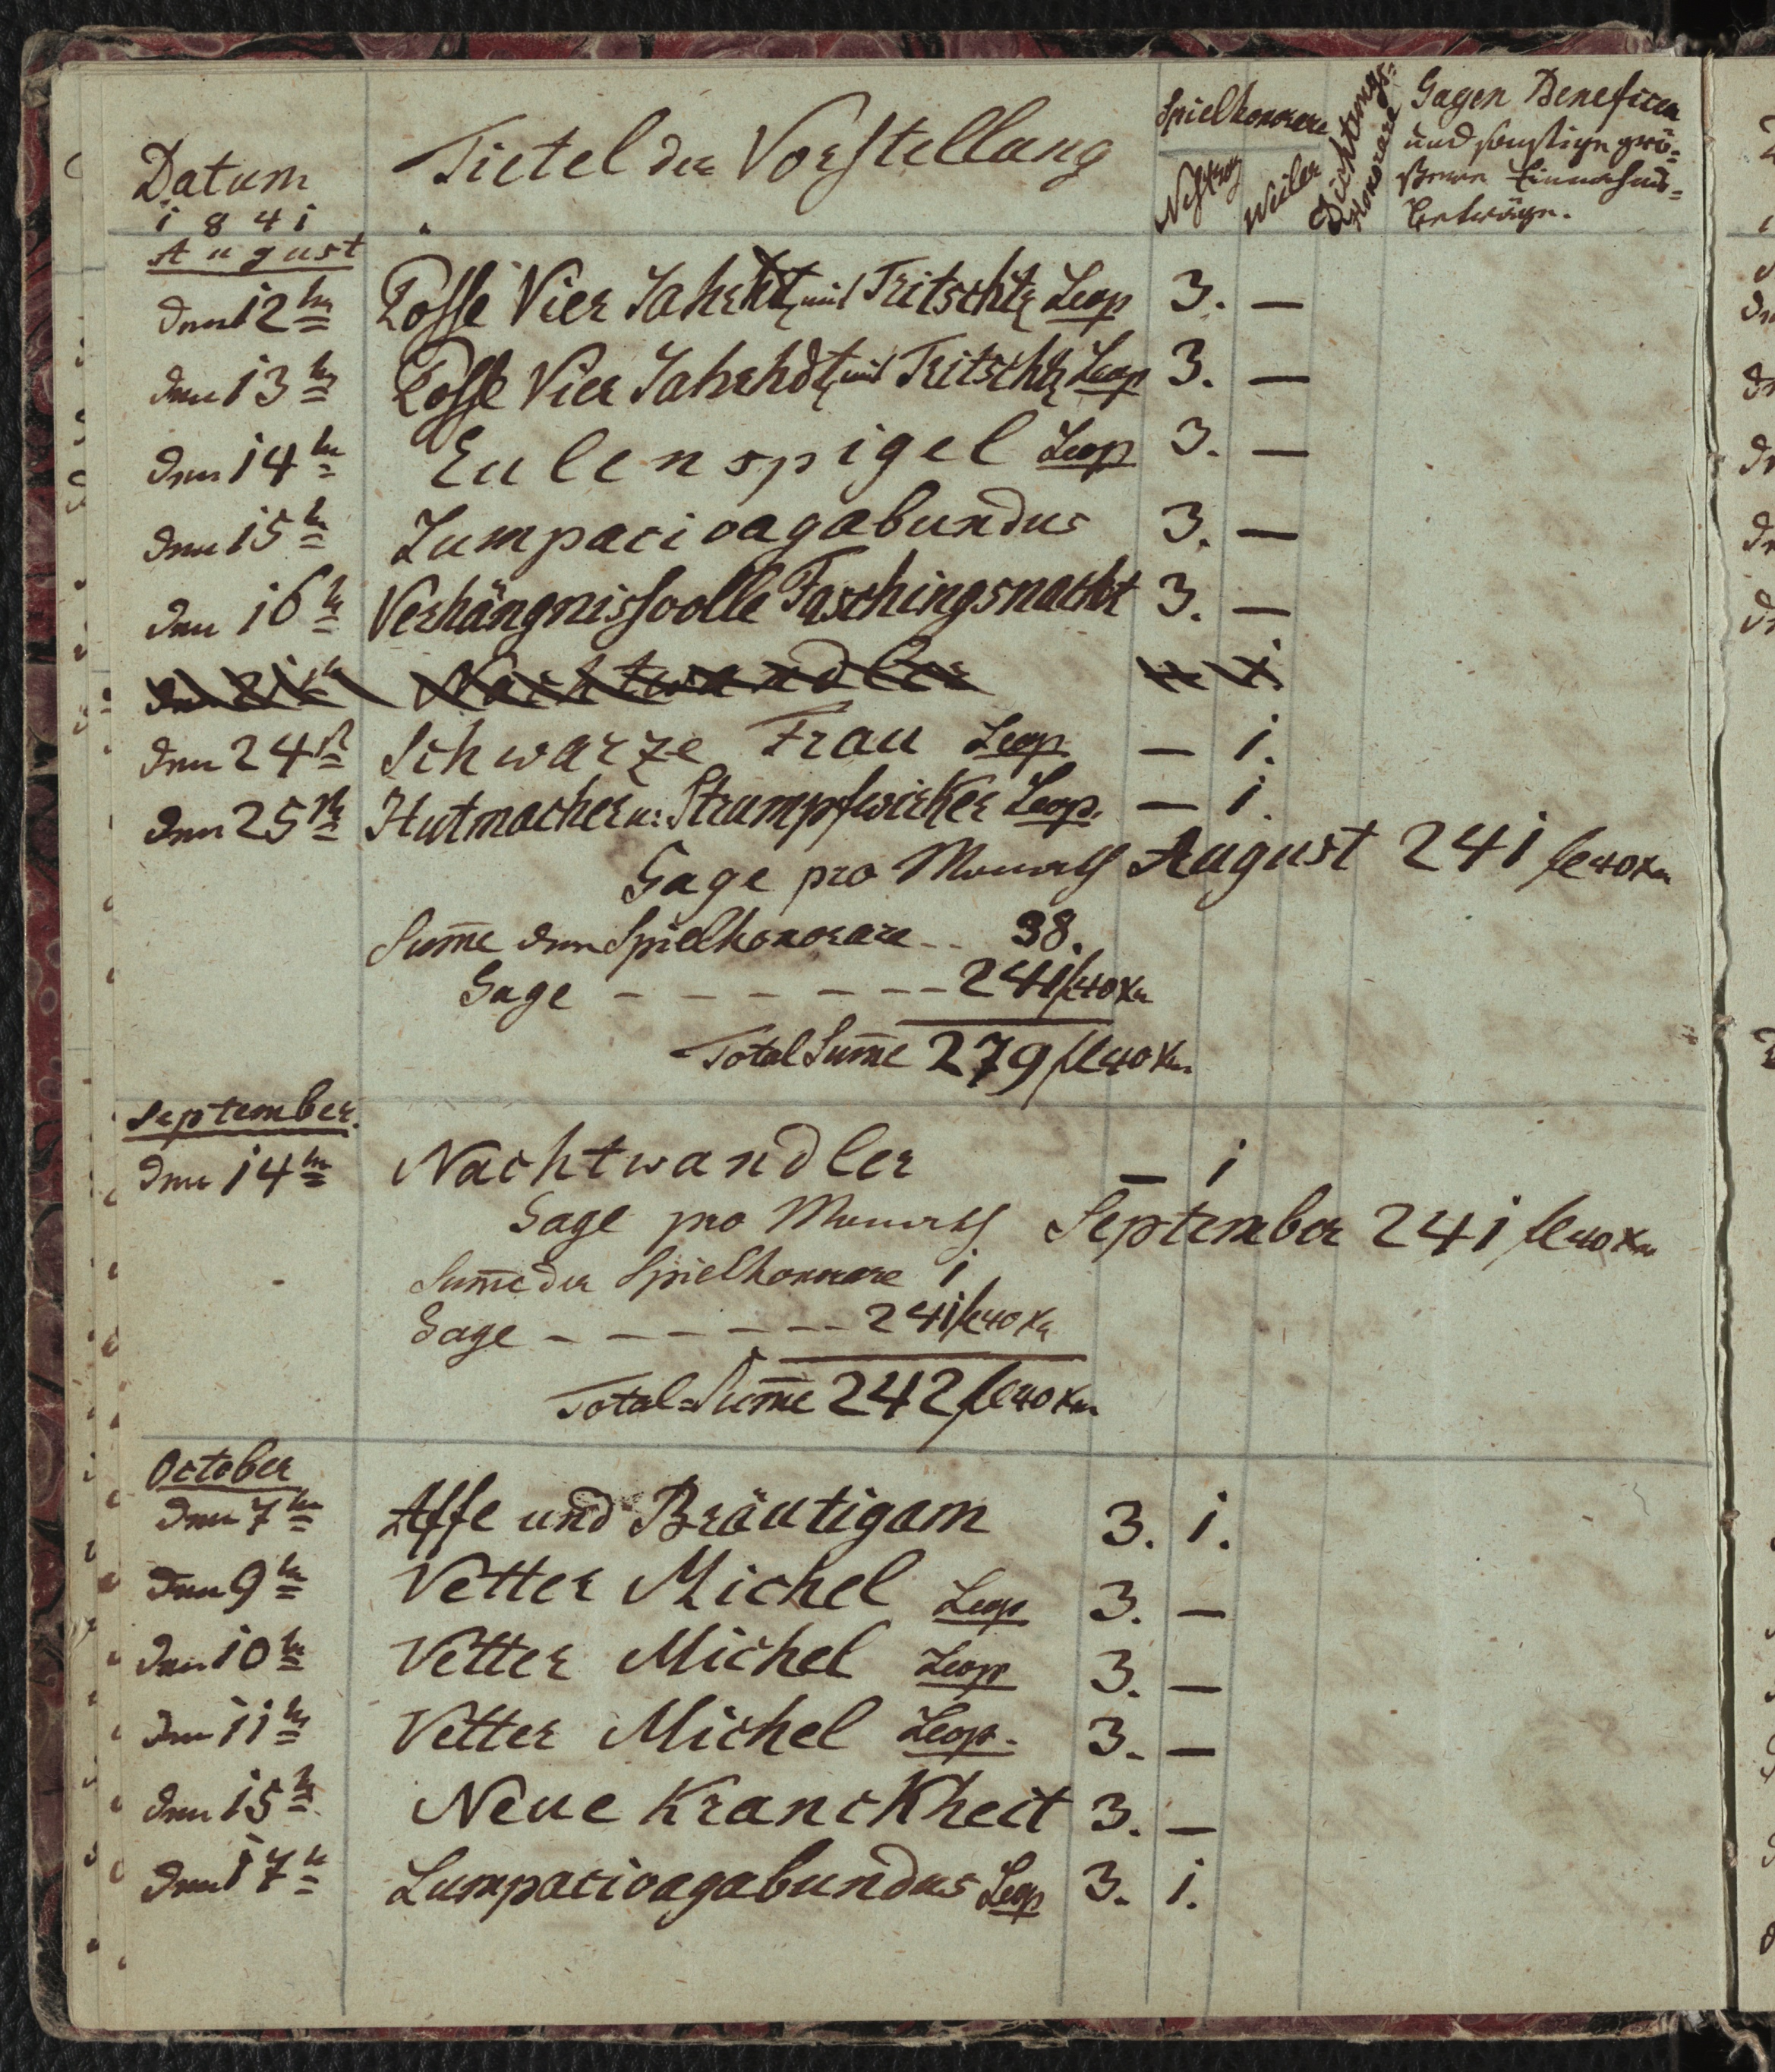 Datum
1841
Tietel der Vorstellung
Spielhonorare
Nestroy
Weiler
Dichtungs-
Honorare
Gagen Beneficen
und sonstige grö-
ßere Einnahms-
beträge.
August
den 12tn Posse Vier Jahrhdt, und Tritschtr Leop 3. —
den 13tn Posse Vier Jahrhdt, und Tritschtr Leop 3. —
den 14tn Eulenspigel Leop 3. —
den 15tn Lumpacivagabundus 3. —
den 16tn Verhängnissvolle Faschingsnacht 3. —
Nachtwandler
den 24tn Schwarze Frau Leop — 1.
den 25tn Hutmacher u: Strumpfwirker Leop. — 1.
Gage pro Monath August 241 fl 40 xr
Sum̄e der Spielhonorare - - 38.
Gage - - - - - - - 241 fl 40 xr
Total Sum̄e 279 fl 40 xr
September.
den 14tn Nachtwandler — 1
Gage pro Monath September 241 fl 40 xr
Sum̄e der Spielhonorare 1
Gage - - - - - - - 241 fl 40 xr
Total-Sum̄e 242 fl 40 xr
October
den 7tn Affe und Bräutigam 3. 1.
den 9tn Vetter Michel Leop 3. —
den 10tn Vetter Michel Leop 3. —
den 11tn Vetter Michel Leop. 3. —
den 15tn Neue Kranckheit 3. —
den 17tn Lumpacivagabundus Leop 3. 1.